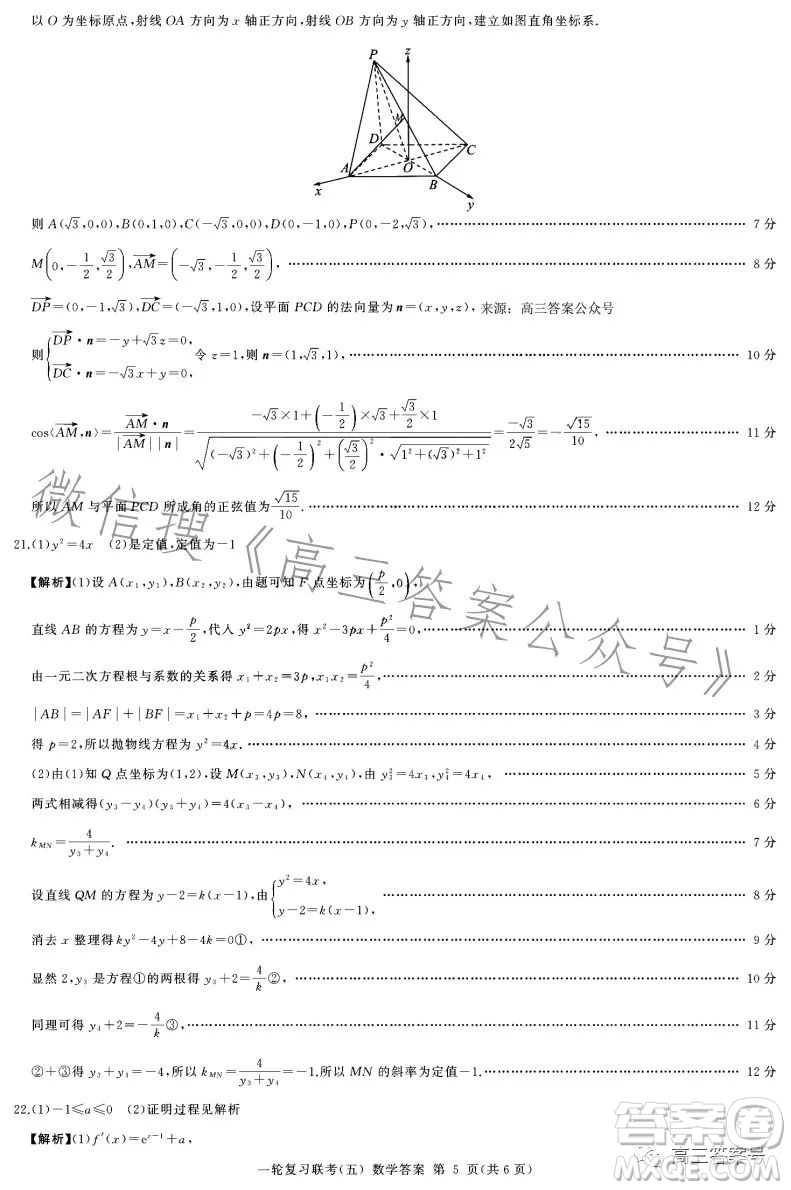 以 O 为坐标原点,射线 OA 方向为 x 轴正方向,射线 OB 方向为 y 轴正方向,建立如图直角坐标系.
z
P
M
D
C
A
O
B
x
y
则 A(√3,0,0),B(0,1,0),C(-√3,0,0),D(0,-1,0),P(0,-2,√3), 7 分
M(0,-1/2,√3/2),AM→=(-√3,-1/2,√3/2), 8 分
DP→=(0,-1,√3),DC→=(-√3,1,0),设平面 PCD 的法向量为 n=(x,y,z), 来源:高三答案公众号
则{DP→·n=-y+√3z=0, DC→·n=-√3x+y=0, 令 z=1,则 n=(1,√3,1), 10 分
cos⟨AM→,n⟩=AM→·n/|AM→||n|=(-√3×1+(-1/2)×√3+√3/2×1)/√((-√3)²+(-1/2)²+(√3/2)²·√(1²+(√3)²+1²))=-√3/2√5=-√15/10, 11 分
所以 AM 与平面 PCD 所成角的正弦值为√15/10. 12 分
21.(1)y²=4x (2)是定值,定值为-1
【解析】(1)设 A(x₁,y₁),B(x₂,y₂),由题可知 F 点坐标为(p/2,0),
直线 AB 的方程为 y=x-p/2,代人 y²=2px,得 x²-3px+p²/4=0, 1 分
由一元二次方程根与系数的关系得 x₁+x₂=3p,x₁x₂=p²/4, 2 分
|AB|=|AF|+|BF|=x₁+x₂+p=4p=8, 3 分
得 p=2,所以抛物线方程为 y²=4x. 4 分
(2)由(1)知 Q 点坐标为(1,2),设 M(x₃,y₃),N(x₄,y₄),由 y₃²=4x₃,y₄²=4x₄, 5 分
两式相减得(y₃-y₄)(y₃+y₄)=4(x₃-x₄), 6 分
k_MN=4/(y₃+y₄). 7 分
设直线 QM 的方程为 y-2=k(x-1),由{y²=4x, y-2=k(x-1), 8 分
消去 x 整理得 ky²-4y+8-4k=0①, 9 分
显然 2,y₃ 是方程①的两根得 y₃+2=4/k②, 10 分
同理可得 y₄+2=-4/k③, 11 分
②+③得 y₃+y₄=-4,所以 k_MN=4/(y₃+y₄)=-1,所以 MN 的斜率为定值-1. 12 分
22.(1)-1≤a≤0 (2)证明过程见解析
【解析】(1)f′(x)=eˣ⁻¹+a,
一轮复习联考(五) 数学答案 第 5 页(共 6 页)
微信搜《高三答案公众号》
高三答案号
答案圈
MXQE.COM